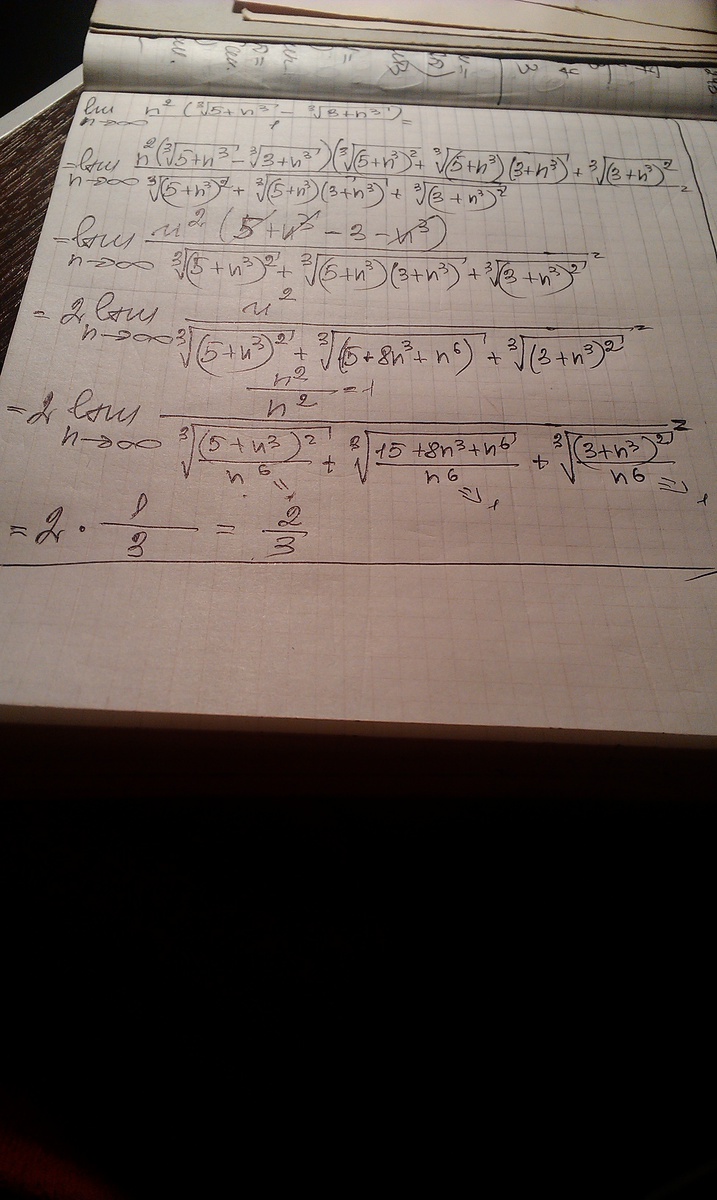 lim n→∞ n² (∛5+n³ - ∛3+n³) / 1 =
= lim n→∞ n²(∛5+n³ - ∛3+n³)(∛(5+n³)² + ∛(5+n³)(3+n³) + ∛(3+n³)²) / ∛(5+n³)² + ∛(5+n³)(3+n³) + ∛(3+n³)² =
= lim n→∞ n² (5+n³ - 3 - n³) / ∛(5+n³)² + ∛(5+n³)(3+n³) + ∛(3+n³)² =
= 2 lim n→∞ n² / ∛(5+n³)² + ∛(5+8n³+n⁶) + ∛(3+n³)² =
= 2 lim n→∞ n²/n² = 1 / ∛(5+n³)²/n⁶ + ∛15+8n³+n⁶/n⁶ + ∛(3+n³)²/n⁶ =
= 2 · 1/3 = 2/3